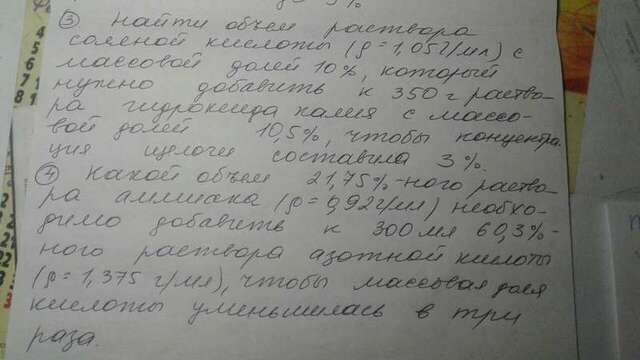 ③ Найти объем раствора
соляной кислоты (ρ=1,05г/мл) с
массовой долей 10%, который
нужно добавить к 350 г раство-
ра гидроксида калия с массо-
вой долей 10,5%, чтобы концентра-
ция щелочи составила 3%.
④ Какой объем 21,75%-ного раство-
ра аммиака (ρ=0,92г/мл) необхо-
димо добавить к 300 мл 60,3%-
ного раствора азотной кислоты
(ρ=1,375 г/мл), чтобы массовая доля
кислоты уменьшилась в три
раза.